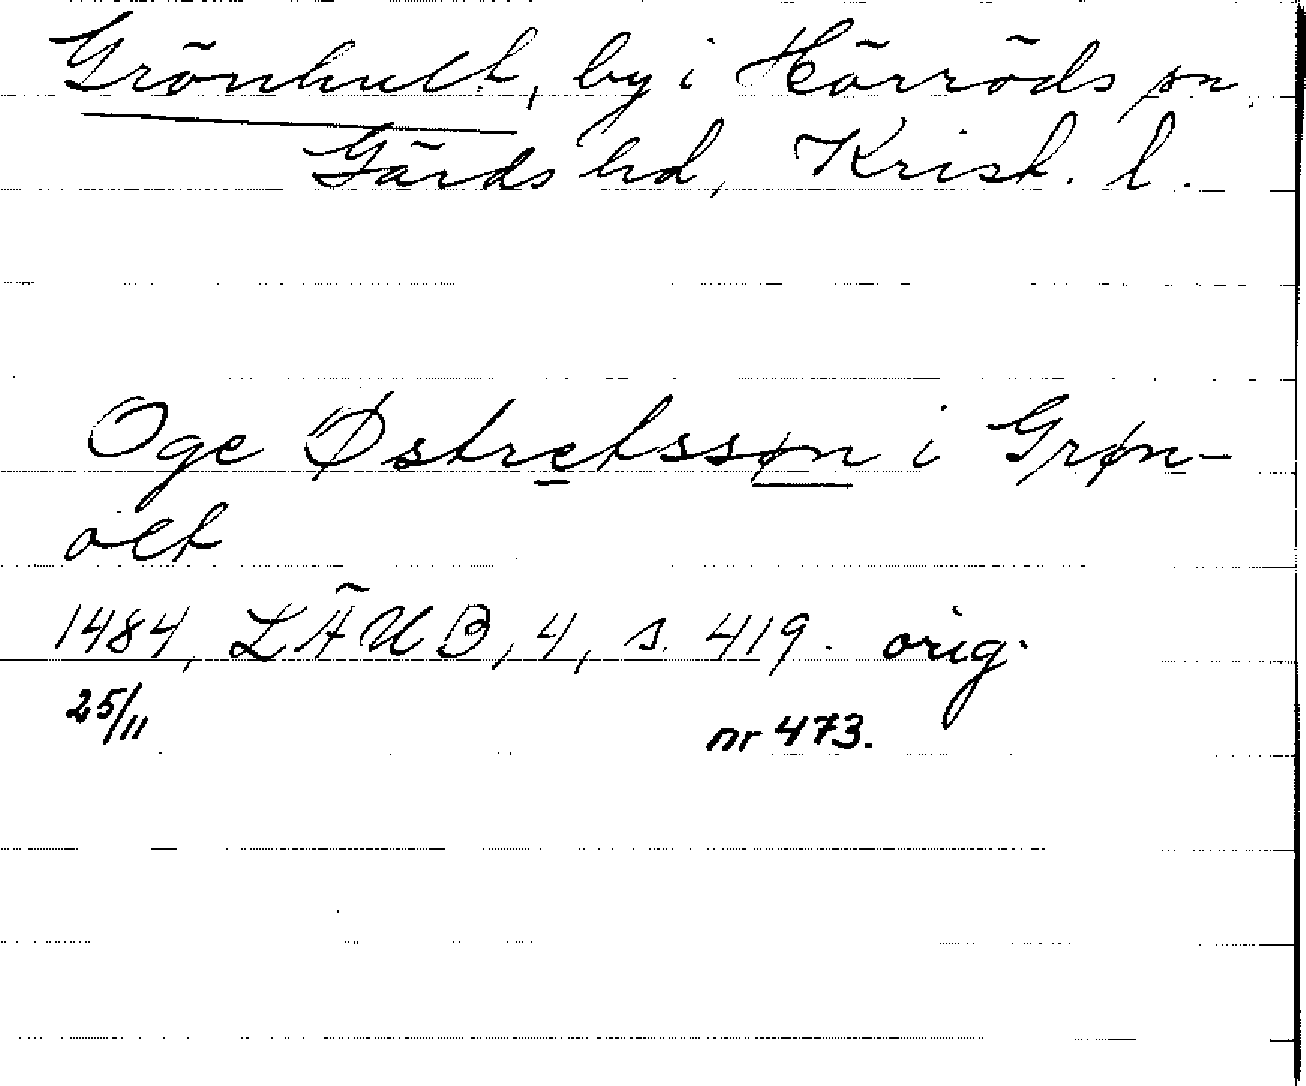 Grönhult, by i Hörröds sn,
Gärds hd, Krist. l.
Oge Østretssøn i Grøn-
olt
1484, LÄUB, 4, s. 419. orig.
25/11 nr 473.